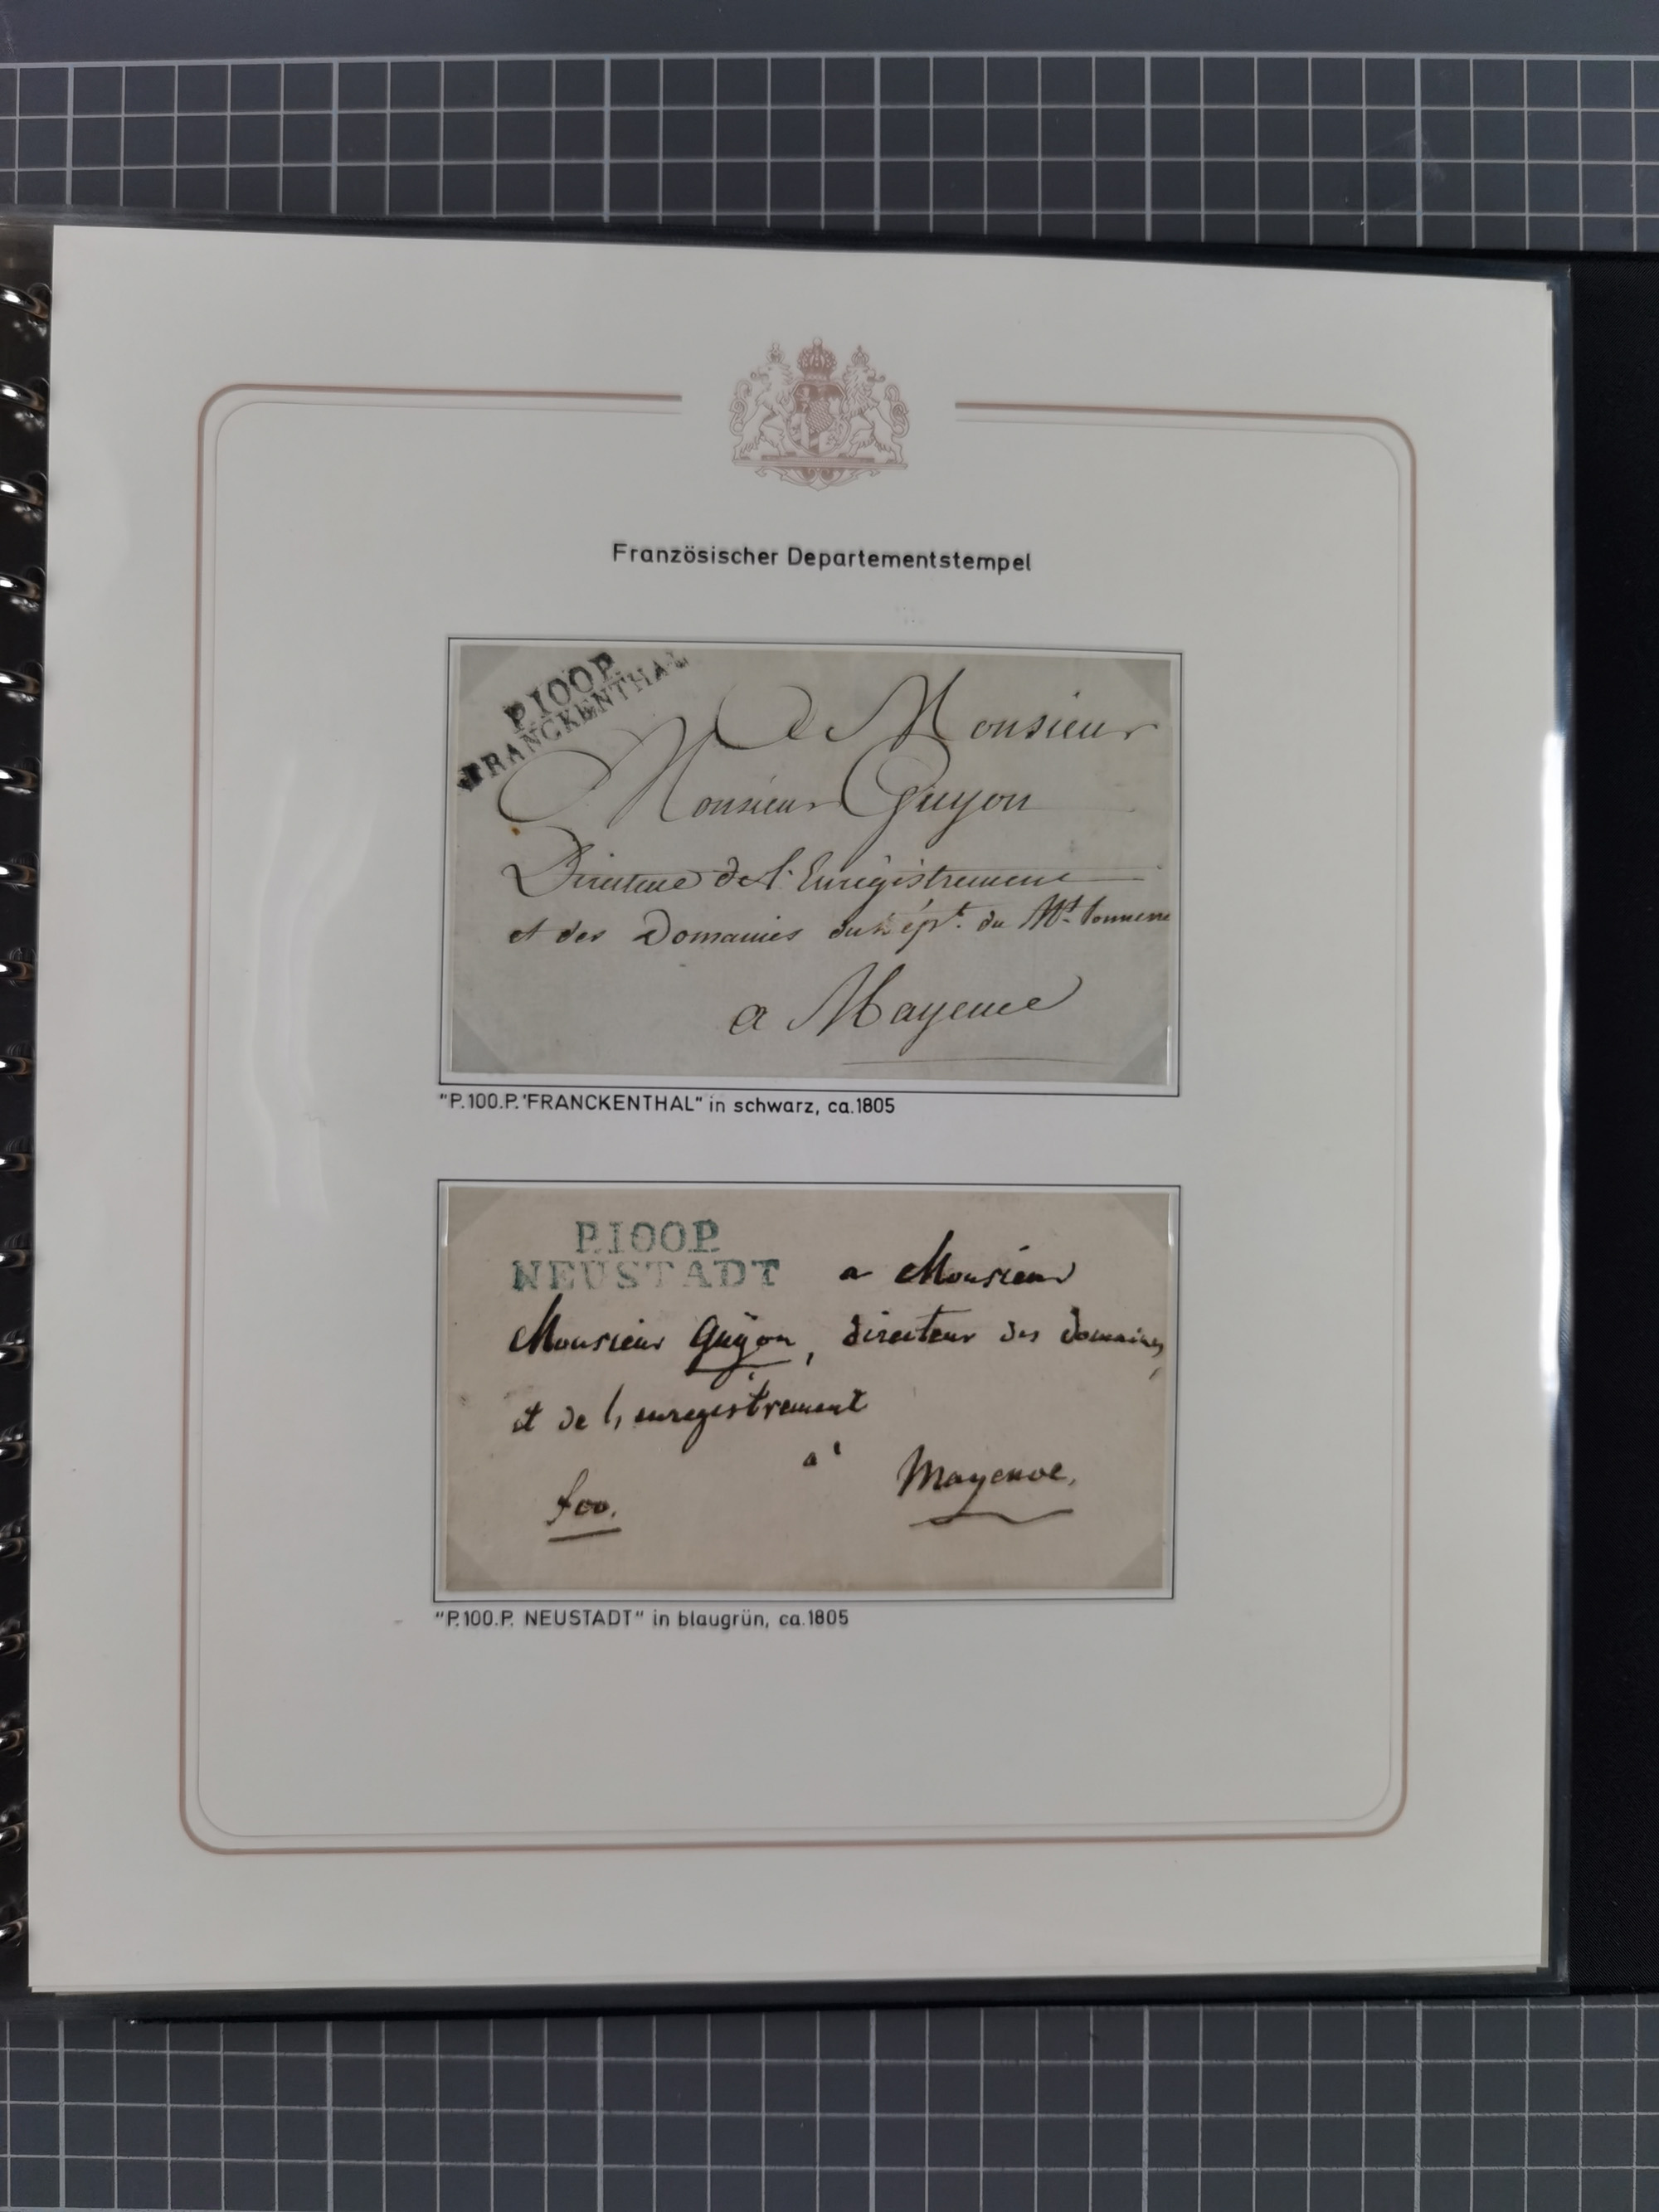 Französischer Departementstempel
P.100.P.
FRANCKENTHAL
A Monsieur
Monsieur Guyon
Directeur de l'Enregistrement
et des Domaines du Dépt. du Mt. Tonnerre
a Mayence
"P.100.P. FRANCKENTHAL" in schwarz, ca.1805
P.100.P.
NEUSTADT
a Monsieur
Monsieur Guÿon, directeur des domaines,
et de l'enregistrement
a'
Mayence.
"P.100.P. NEUSTADT" in blaugrün, ca.1805